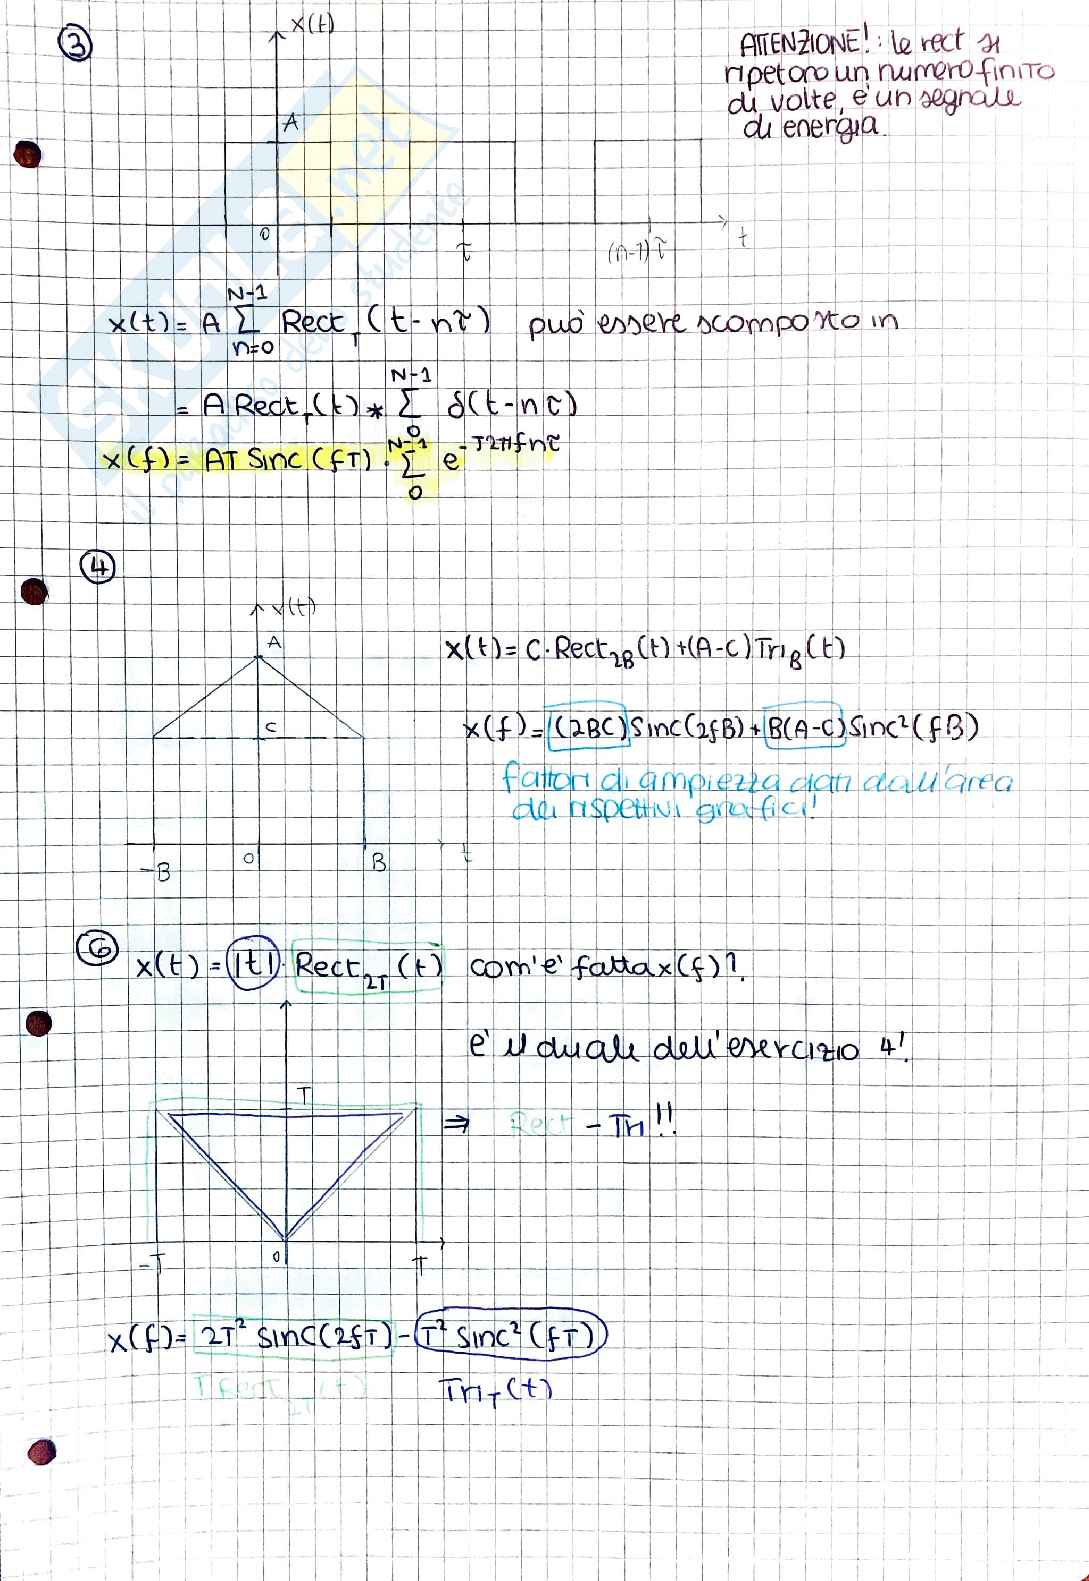 ③
x(t)
ATTENZIONE!: le rect si
ripetono un numero finito
di volte, è un segnale
di energia.
A
0
τ
(n-1)τ
t
SKUOLA.net
x(t) = A Σ_{n=0}^{N-1} Rect_T (t-nτ) può essere scomposto in
= A Rect_T (t) * Σ_{0}^{N-1} δ(t-nτ)
x(f) = AT Sinc(fT) · Σ_{0}^{N-1} e^{-J2πfnτ}
④
x(t)
A
x(t) = C·Rect_{2B}(t)+(A-C)Tri_B(t)
C
x(f) = (2BC)Sinc(2fB)+B(A-C)Sinc²(fB)
fattori di ampiezza dati dall'area
dei rispettivi grafici!
-B
0
B
t
⑥
x(t) = |t|· Rect_{2T} (t) com'è fatta x(f)?
è il duale dell'esercizio 4!
T
⇒ Rect - Tri!!
-T
0
T
x(f) = 2T² Sinc(2fT) - T² Sinc²(fT)
T Rect_{2T}(t) Tri_T(t)